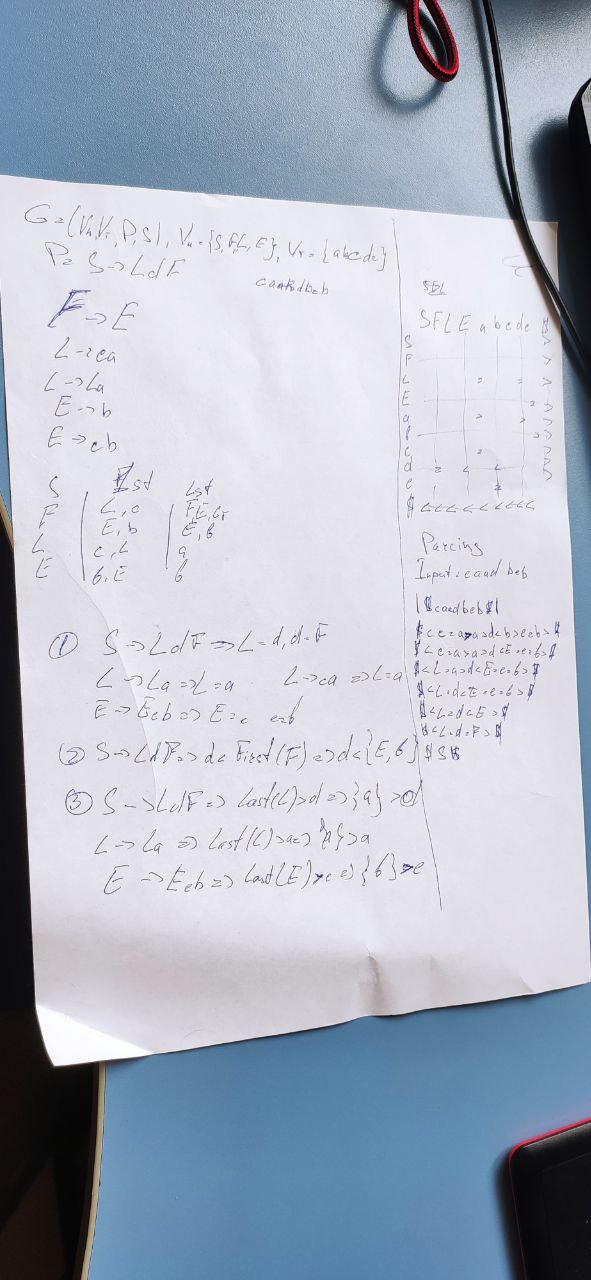 G=(Vn,Vt,P,S), Vn={S,F,L,E}, Vt={abcde}
P= S→LdF
F→E
L→ca
L→La
E→b
E→eb
1st Lst
S | L,c |
F | E,b | E,b
L | c,L | a
E | b,E | b
① S→LdF ⇒L=d, d=F
L→La ⇒L=a L→ca
E→Eeb⇒ E=e e=b
② S→LdF⇒ d< First(F) ⇒d<{E,b}
③ S→LdF ⇒ Last(L)>d⇒{a}>d
L→La ⇒ Last(L)>a⇒{a}>a
E→Eeb⇒ Last(E)>e⇒{b}>e
S F L E a b c d e $
S
F
L
E
a
c
d
e
$ < < < < < < < < <
Parcing
Input:caad beb
$<c=a>a>d<b>e=b>$
$<L=a>d<E=e=b>$
$<L=d<E=e=b>$
$<L=d<E>$
$<L=d=F>$
$S$